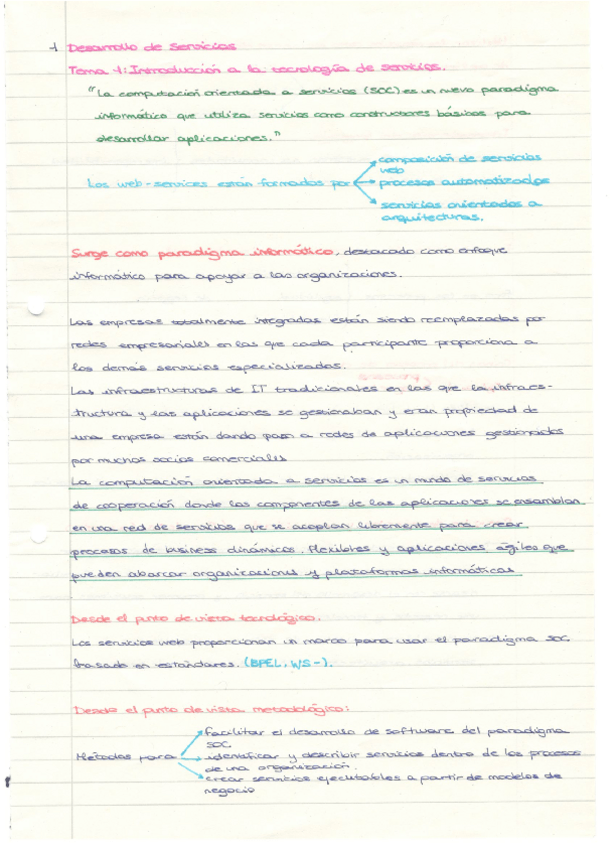 1 Desarrollo de Servicios
Tema 1: Introducción a la tecnología de servicios.
"La computación orientada a servicios (SOC) es un nuevo paradigma
informático que utiliza servicios como constructores básicos para
desarrollar aplicaciones."
composición de servicios
web
Los web-services están formados por procesos automatizados
servicios orientados a
arquitecturas.
Surge como paradigma informático, destacado como enfoque
informático para apoyar a las organizaciones.
Las empresas totalmente integradas están siendo reemplazadas por
redes empresariales en las que cada participante proporciona a
los demás servicios especializados.
Las infraestructuras de IT tradicionales en las que la infraes-
tructura y las aplicaciones se gestionaban y eran propiedad de
una empresa están dando paso a redes de aplicaciones gestionadas
por muchos socios comerciales
La computación orientada a servicios es un mundo de servicios
de cooperación donde las componentes de las aplicaciones se ensamblan
en una red de servicios que se acoplan libremente para crear
procesos de business dinámicos, flexibles y aplicaciones ágiles que
pueden abarcar organizaciones y plataformas informáticas
Desde el punto de vista tecnológico.
Los servicios web proporcionan un marco para usar el paradigma SOC
basado en estándares. (BPEL, WS-).
Desde el punto de vista metodológico:
facilitar el desarrollo de software del paradigma
SOC
Métodos para identificar y describir servicios dentro de los procesos
de una organización.
crear servicios ejecutables a partir de modelos de
negocio